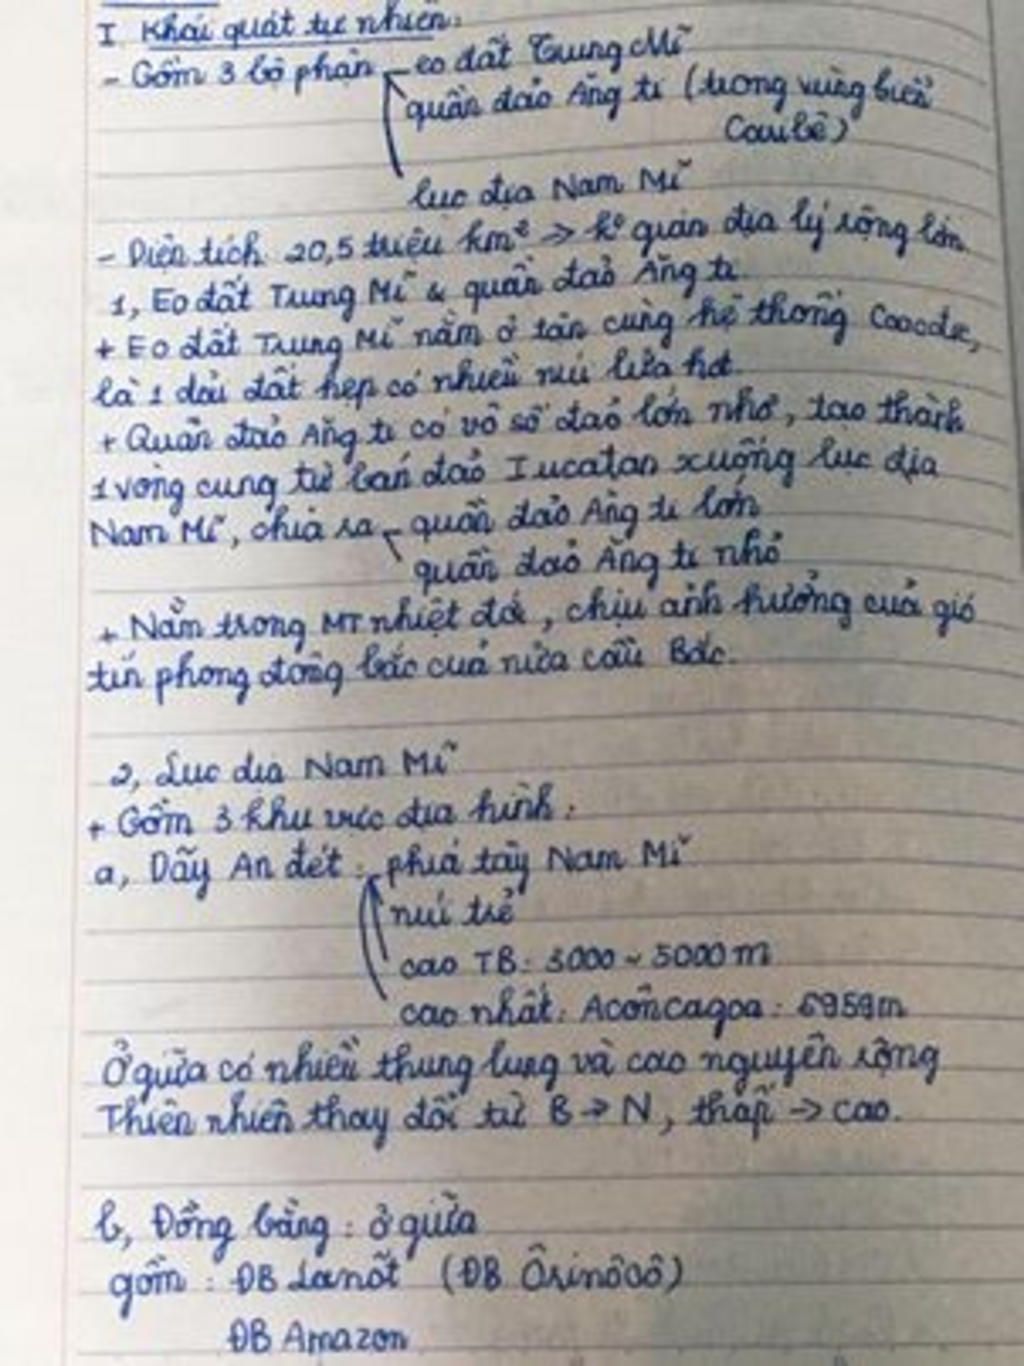 I Khái quát tự nhiên:
- Gồm 3 bộ phận - eo đất Trung Mĩ
quần đảo Ăng ti (trong vùng biển
Caribê)
lục địa Nam Mĩ
- Diện tích 20,5 triệu km² => ko gian địa lý rộng lớn
1, Eo đất Trung Mĩ & quần đảo Ăng ti
+ Eo đất Trung Mĩ nằm ở tận cùng hệ thống Coocđie,
là 1 dải đất hẹp có nhiều núi lửa hđ
+ Quần đảo Ăng ti có vô số đảo lớn nhỏ, tạo thành
1 vòng cung từ bán đảo Iucatan xuống lục địa
Nam Mĩ, chia ra - quần đảo Ăng ti lớn
quần đảo Ăng ti nhỏ
+ Nằm trong MT nhiệt đới, chịu ảnh hưởng của gió
tín phong đông bắc của nửa cầu Bắc.
2, Lục địa Nam Mĩ
+ Gồm 3 khu vực địa hình:
a, Dãy An đét: phía tây Nam Mĩ
núi trẻ
cao TB: 3000 ~ 5000 m
cao nhất: Acôncagoa: 6959m
Ở giữa có nhiều thung lũng và cao nguyên rộng
Thiên nhiên thay đổi từ B -> N, thấp -> cao.
b, Đồng bằng: ở giữa
gồm: ĐB Lanốt (ĐB Ôrinôcô)
ĐB Amazon